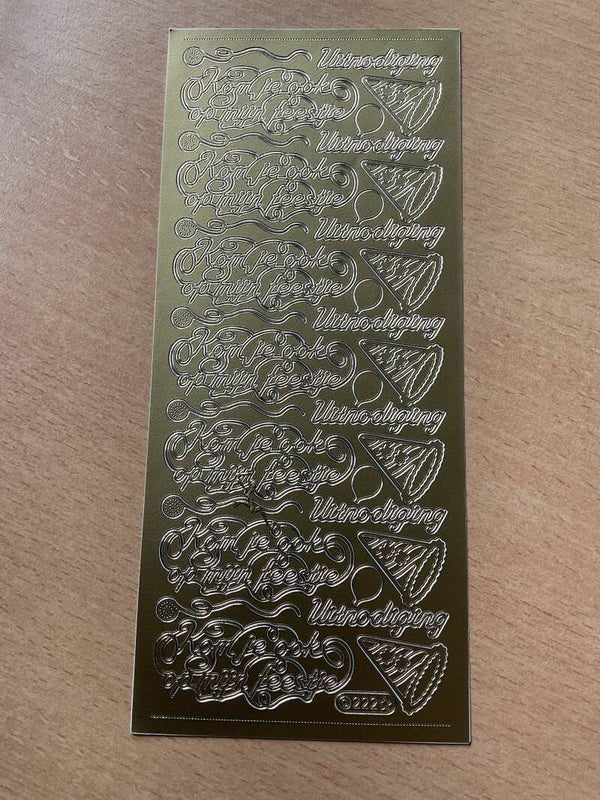 Uitnodiging
Kom je ook
op mijn feestje
Uitnodiging
Kom je ook
op mijn feestje
Uitnodiging
Kom je ook
op mijn feestje
Uitnodiging
Kom je ook
op mijn feestje
Uitnodiging
Kom je ook
op mijn feestje
Uitnodiging
Kom je ook
op mijn feestje
Uitnodiging
Kom je ook
op mijn feestje